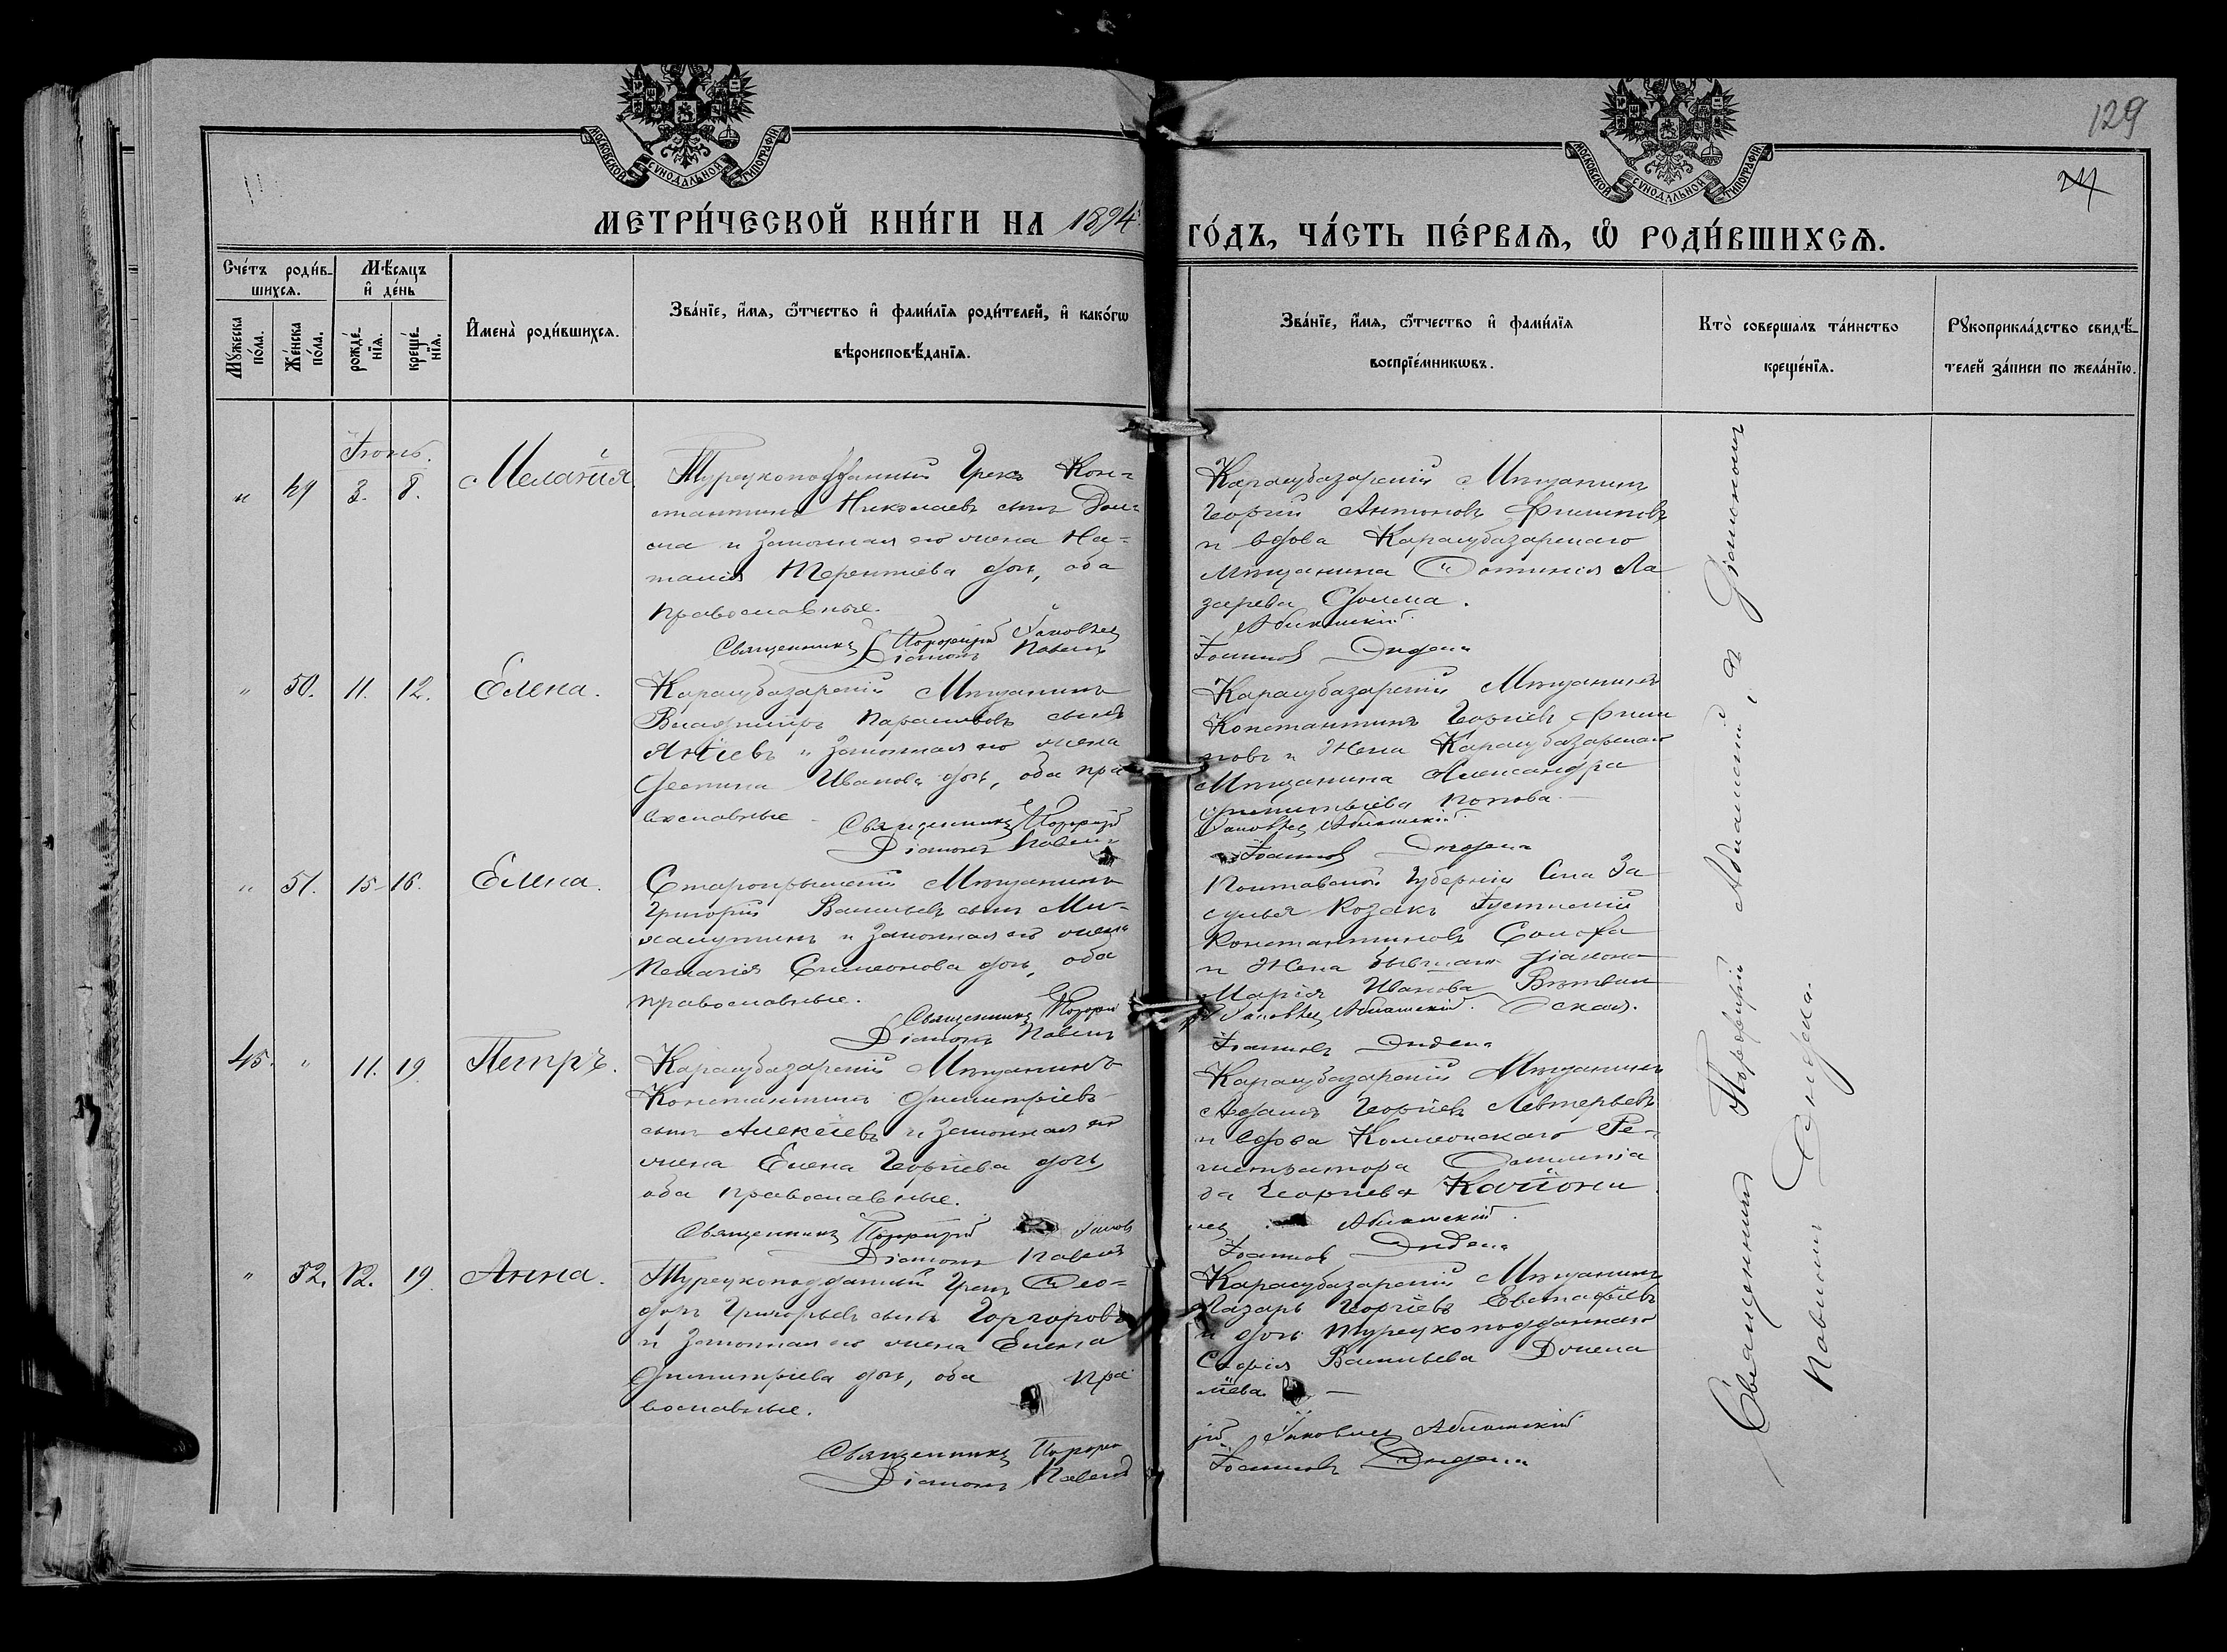 129
МОСКОВСКОЙ СѴНОДАЛЬНОЙ ТИПОГРАФІИ
МОСКОВСКОЙ СѴНОДАЛЬНОЙ ТИПОГРАФІИ
МЕТРИ́ЧЕСКОЙ КНИ́ГИ НА 1894 ГО́ДЪ, ЧА́СТЬ ПЕ́РВАѦ, Ѿ РОДИ́ВШИХСѦ.
Сче́тъ роди́в-
шихсѧ.
Мꙋ́жеска по́ла.
Же́нска по́ла.
Мѣ́сѧцъ и҆ де́нь
рожде́-нїѧ.
креще́-нїѧ.
И҆мена̀ роди́вшихсѧ.
Зва́нїе, и҆́мѧ, ѻ҆́тчество и҆ фами́лїѧ роди́телей, и҆ како́гѡ
вѣроисповѣ́данїѧ.
Зва́нїе, и҆́мѧ, ѻ҆́тчество и҆ фами́лїѧ
воспрїе́мникѡвъ.
Кто̀ соверша́лъ та́инство
креще́нїѧ.
Рꙋкоприкла́дство свидѣ́-
телей за́писи по жела́нїю.
Іюнь.
„ 49 3. 8. Меланія
Турецкоподданный Грекъ Кон-
стантинъ Николаевъ сынъ
и законная его жена На-
талія Терентіева дочь, оба
православные.
Священникъ Порфирій Яковлев
Діаконъ Павелъ
Карасубазарскій Мѣщанинъ
Георгій Антоновъ
и вдова Карасубазарскаго
Мѣщанина Ла
зарева
Абламскій
Іоанновъ Дидена
„ 50. 11. 12. Елена.
Карасубазарскій Мѣщанинъ
Владиміръ сынъ
и законная его жена
Иванова дочь, оба пра
вославные
Священникъ Порфирій
Діаконъ Павелъ
Карасубазарскій Мѣщанинъ
Константинъ Георгіевъ
новъ и Жена Карасубазарскаго
Мѣщанина Александра
Димитріева Попова.
Яковлев Абламскій
Іоанновъ Дидена
„ 51. 15. 16. Елена.
Старокрымскій Мѣщанинъ
Григорій Васильевъ сынъ Ми-
и законная его жена
Пелагія Симеонова дочь, оба
православные.
Священникъ Порфи
Діаконъ Павелъ
Полтавской Губерніи Села За
сулья Козакъ
Константиновъ Солоха
и Жена бывшаго діакона
Марія Иванова
ская.
Яковлев Абламскій.
Іоанновъ Дидена
45. „ 11. 19. Петръ.
Карасубазарскій Мѣщанинъ
Константинъ Димитріевъ
сынъ Алексіевъ и законная его
жена Елена Георгіева дочь,
оба православные.
Священникъ Порфирій Яков
Діаконъ Павелъ
Карасубазарскій Мѣщанинъ
Георгіевъ Левтерьевъ
и вдова Коллежскаго Ре-
гистратора
да Георгіева
лев Абламскій.
Іоанновъ Дидена
„ 52. 12. 19. Анна.
Турецкоподданный Грекъ Ѳео-
доръ Григорьевъ сынъ Горгоровъ
и законная его жена Елена
Димитріева дочь, оба пра
вославные.
Священникъ Порфи
Діаконъ Павелъ
Карасубазарскій Мѣщанинъ
Лазарь Георгіевъ Евстафіевъ
и дочь турецкоподданнаго
Софія Васильева
рій Яковлев Абламскій
Іоанновъ Дидена
Священникъ Порфирій Абламскій, съ Діакономъ
Павломъ Дидена.